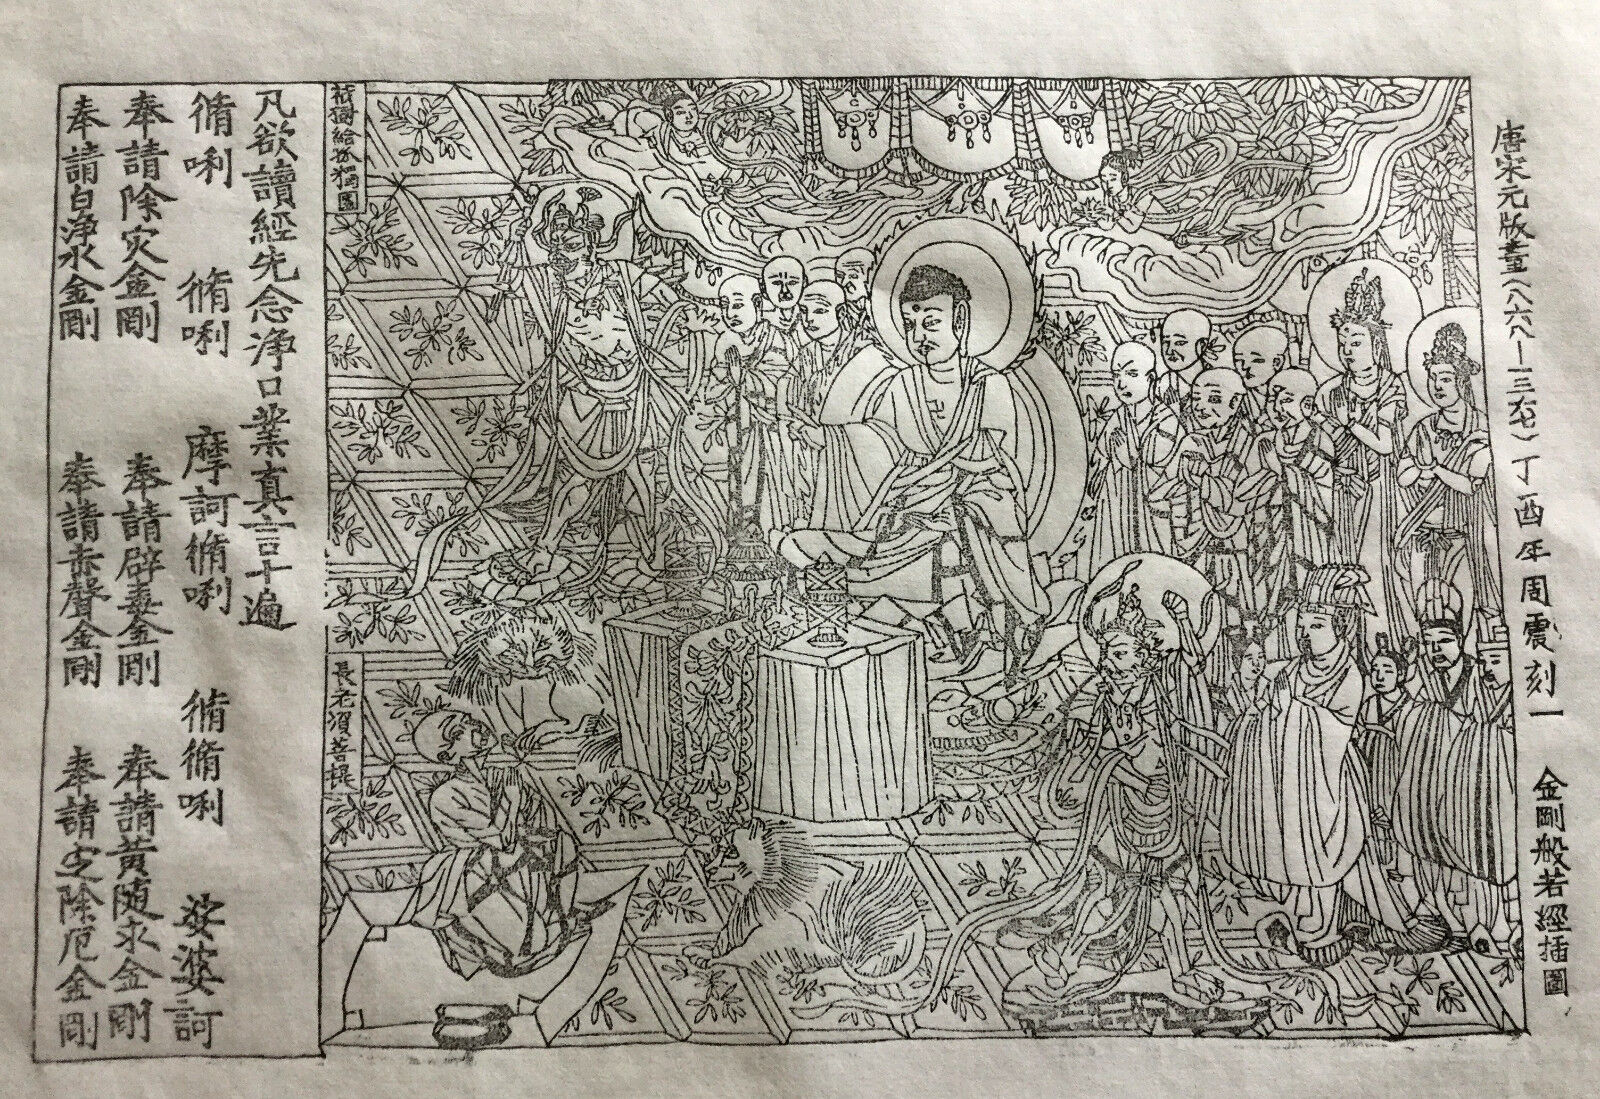 唐宋元版畫(八六八—一三六七)丁酉年周震刻一 金剛般若經插圖
祇樹給孤獨園
長老須菩提
凡欲讀經先念浄口業真言十遍
脩唎 脩唎 摩訶脩唎 脩脩唎 娑婆訶
奉請除灾金剛 奉請辟毒金剛 奉請黃随求金剛
奉請白浄水金剛 奉請赤聲金剛 奉請定除厄金剛